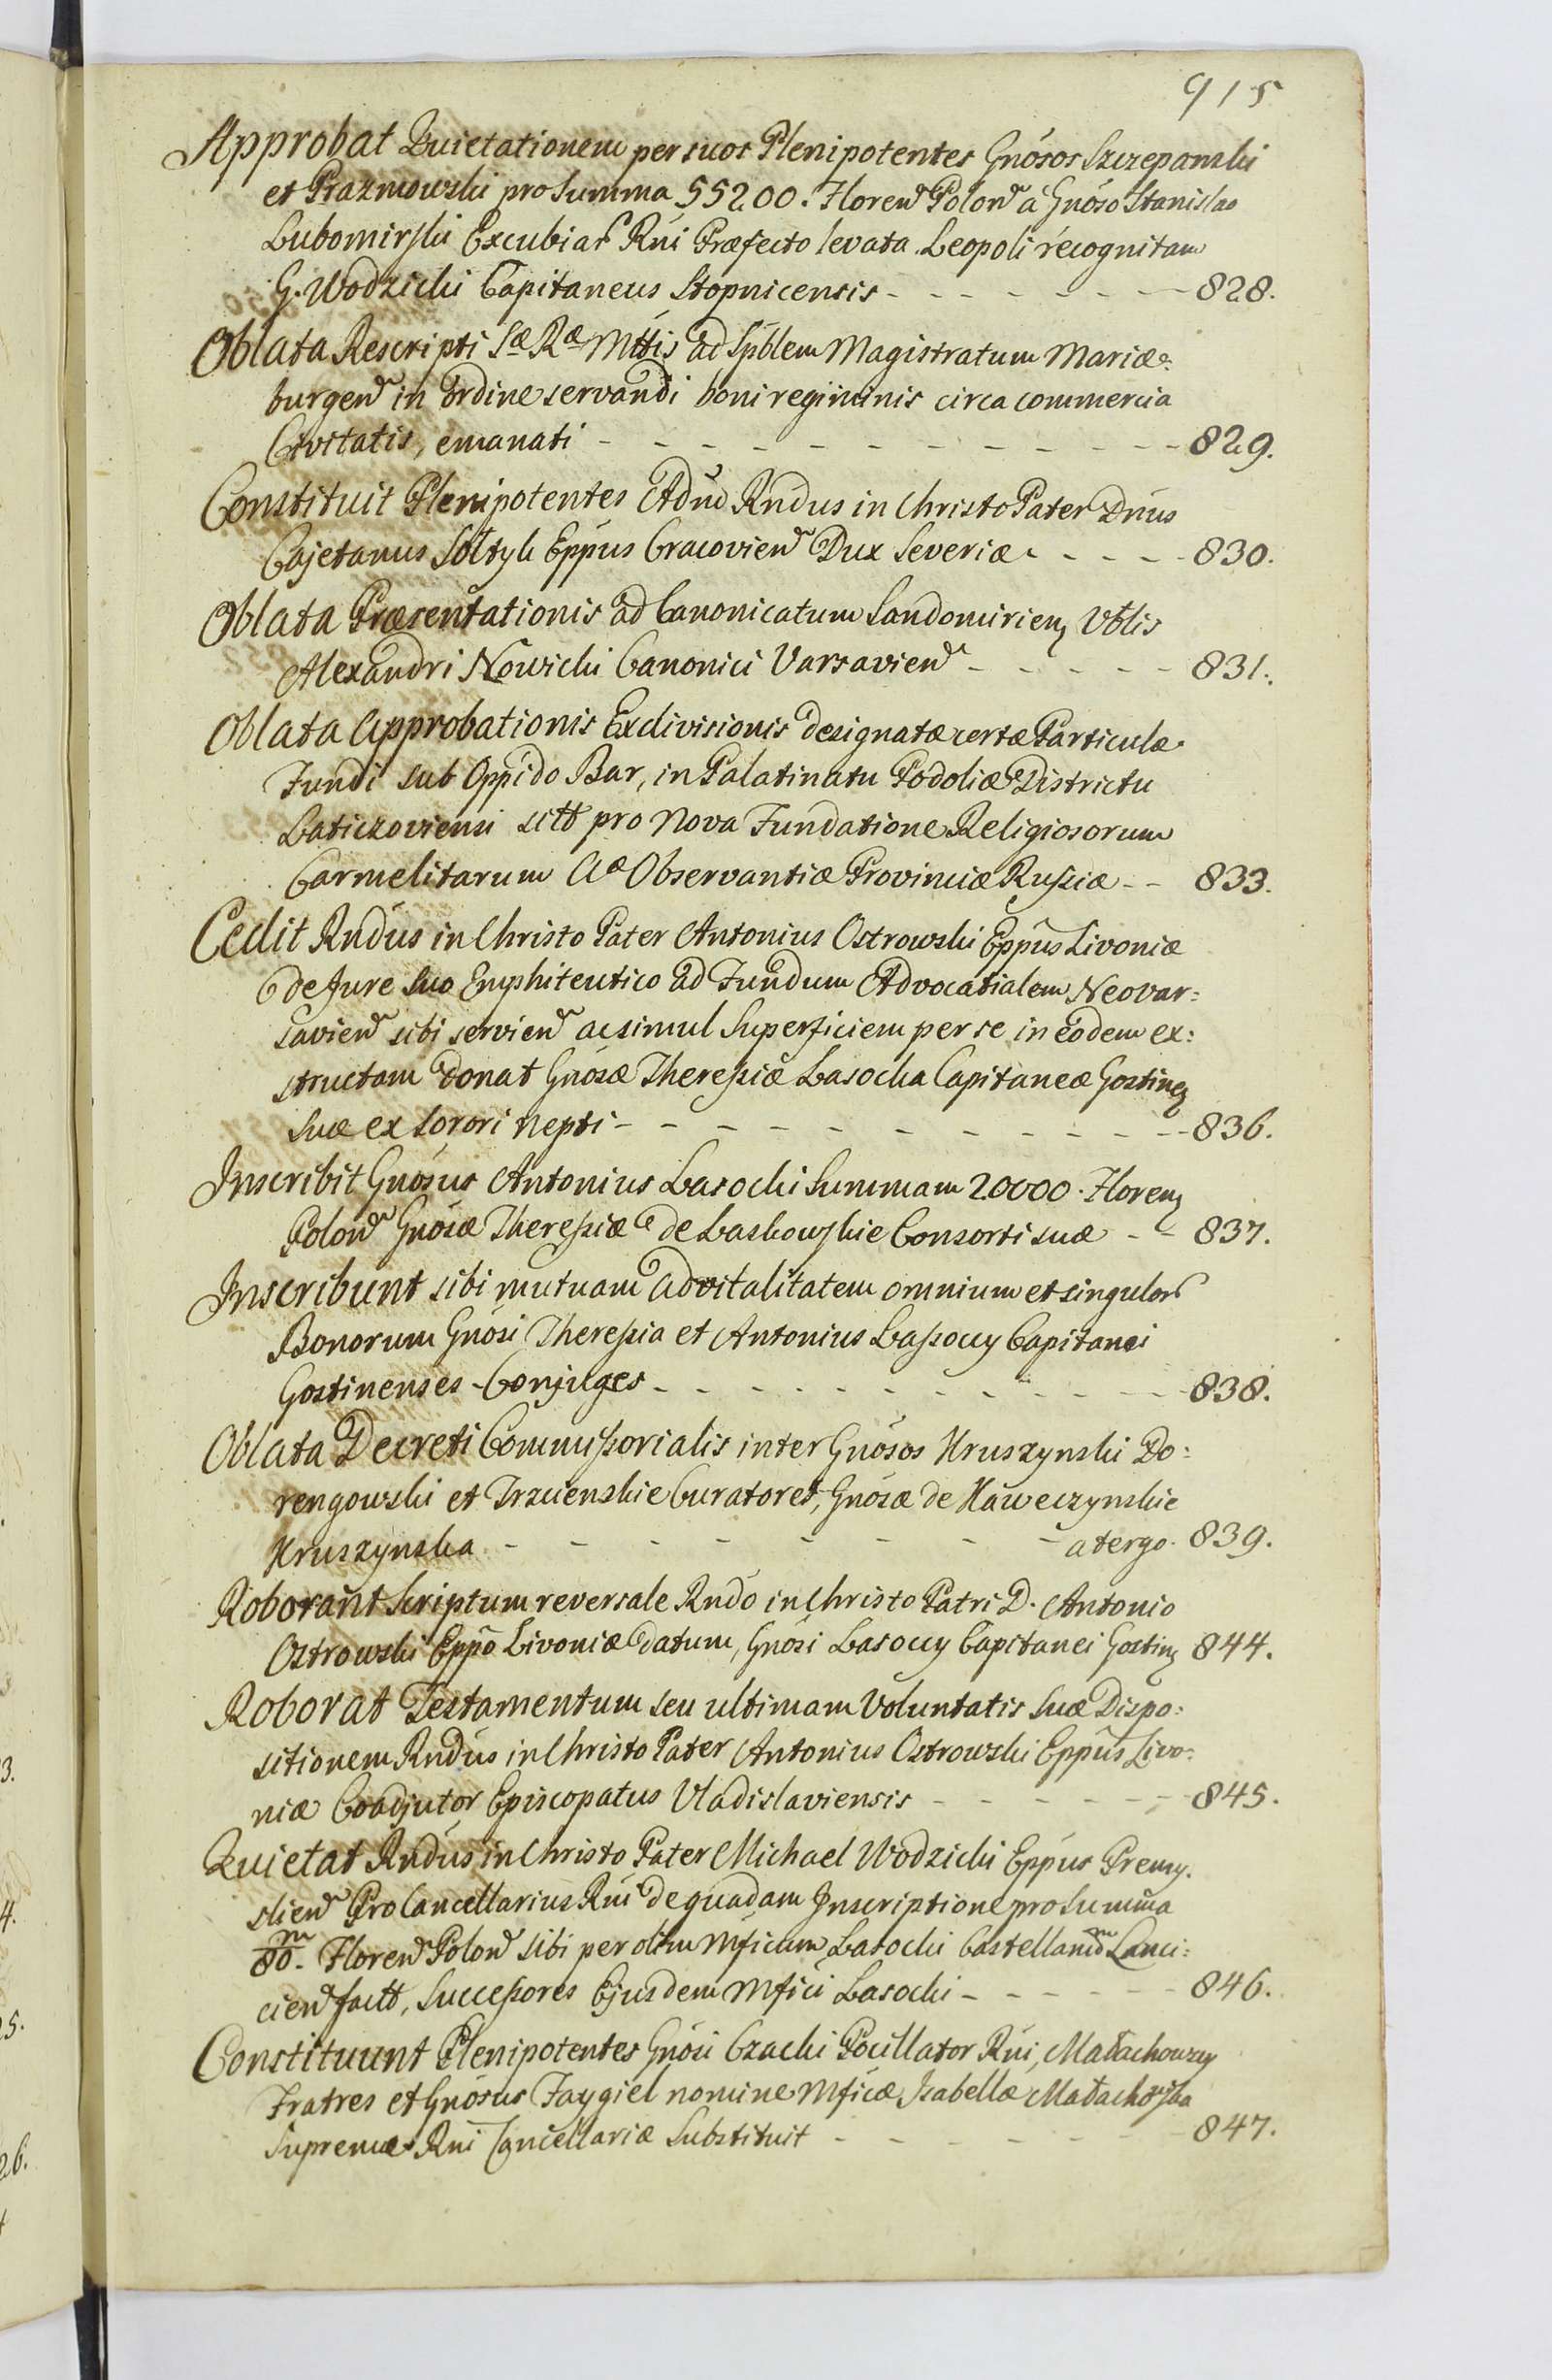 915
Approbat Quietationem per suos Plenipotentes Gnósos Szczepanski
et Prazmowski pro Summa 55200. Floren Polon à Gnóso Stanislao
Lubomirski Excubiar Rni Præfecto levata Leopoli recognitam
G. Wodzicki Capitaneus Stopnicensis - - - - - - 828.
Oblata Rescripti Sæ Ræ Mttis ad Spblem Magistratum Mariæ:
burgen in Ordine servandi boni regiminis circa commercia
Civitatis, emanati - - - - - - - - - - 829.
Constituit Plenipotentes Adm Rndus in Christo Pater Dnus
Cajetanus Soltyk Eppus Cracovien Dux Severiæ - - - - 830.
Oblata Præsentationis ad Canonicatum Sandomirien Vblis
Alexandri Nowicki Canonici Varsavien - - - - - 831.
Oblata Approbationis Exdivisionis designatæ certæ Particulæ
Fundi sub Oppido Bar, in Palatinatu Podoliæ Districtu
Laticzoviensi sitt pro Nova Fundatione Religiosorum
Carmelitarum Aæ Observantiæ Provinciæ Russiæ - - 833.
Cedit Rndus in Christo Pater Antonius Ostrowski Eppus Livoniæ
de Jure suo Emphiteutico ad Fundum Advocatialem Neovar:
savien sibi servien ac simul Superficiem per se in eodem ex:
structam donat Gnosæ Theressiæ Lasocka Capitaneæ Gostinen
suæ ex Sorori Nepti - - - - - - - - - - 836.
Inscribit Gnosus Antonius Lasocki Summam 20000. Floren
Polon Gnosæ Theressiæ de Laskowskie Consorti suæ - - 837.
Inscribunt sibi mutuam advitalitatem omnium et singulor
Bonorum Gnosi Theressia et Antonius Lassoccy Capitanei
Gostinenses Conjuges - - - - - - - - - - 838.
Oblata Decreti Commissorialis inter Gnosos Kruszynski Do:
rengowski et Trzcienskie Curatores, Gnosæ de Kaweczynskie
Kruszynska - - - - - - - - a tergo. 839.
Roborant Scriptum reversale Rndo in Christo Patri D. Antonio
Ostrowski Eppo Livoniæ datum, Gnosi Lasoccy Capitanei Gostin 844.
Roborat Testamentum seu ultimam Voluntatis suæ Dispo:
sitionem Rndus in Christo Pater Antonius Ostrowski Eppus Livo:
niæ Coadjutor Episcopatus Vladislaviensis - - - - - 845.
Quietat Rndus in Christo Pater Michael Wodzicki Eppus Premy.
slien Pro Cancellarius Rni de quadam Inscriptione pro Summa
80m. Floren Polon sibi per olim Mficum Lasocki Castellanum Lanci:
cien factt, Successores Ejusdem Mfici Lasocki - - - - - 846.
Constituunt Plenipotentes Gnosi Czacki Pocillator Rni, Małachowscy
Fratres et Gnosus Faygiel nomine Mficæ Izabellæ Małachowska
Supremæ Rni Cancellariæ Substituit - - - - - - 847.